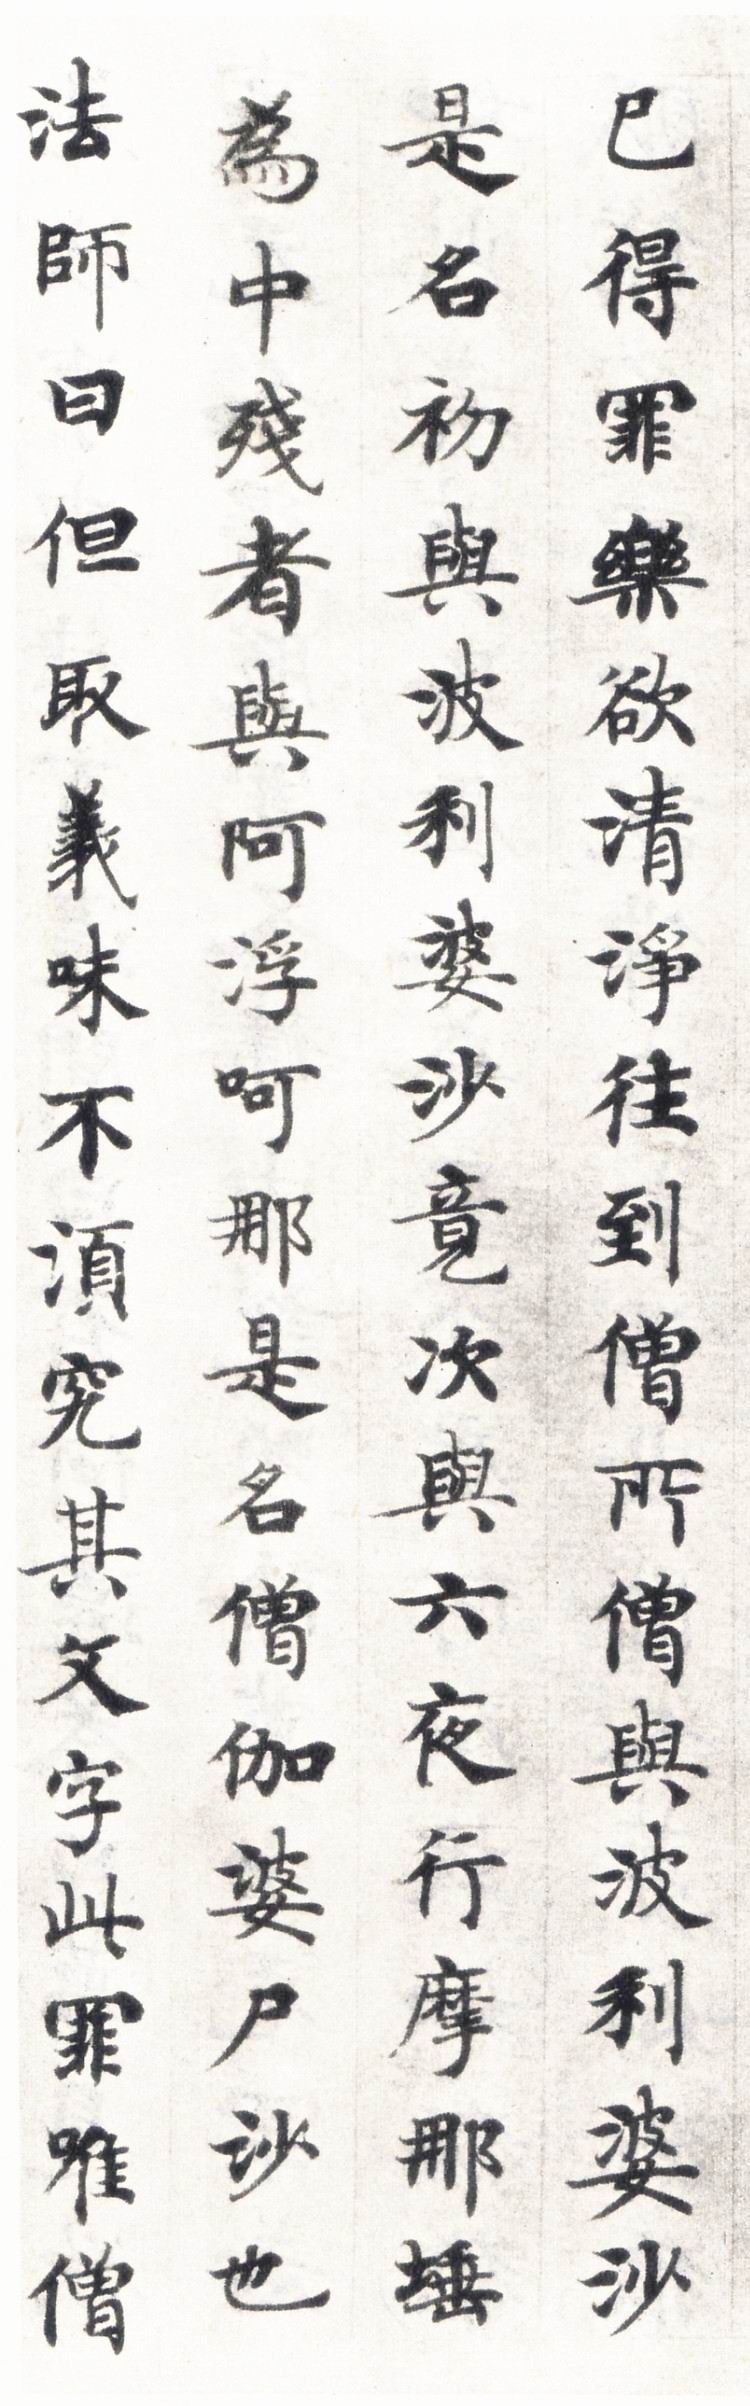 已得罪樂欲清淨往到僧所僧與波利婆沙
是名初與波利婆沙竟次與六夜行摩那埵
為中殘者與阿浮呵那是名僧伽婆尸沙也
法師曰但取義味不須究其文字此罪唯僧